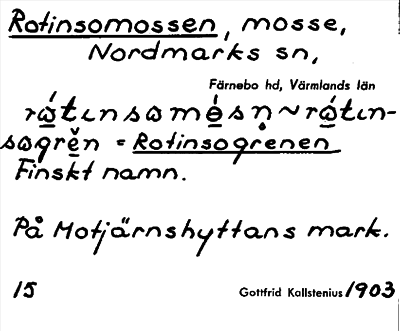 Rotinsomossen, mosse,
Nordmarks sn,
Färnebo hd, Värmlands län
rώ̲tɩnsωmɵ̲́sṇ ~ rώ̲tɩn-
sωgrĕ̲n = Rotinsogrenen
Finskt namn.
På Motjärnshyttans mark.
15 Gottfrid Kallstenius 1903